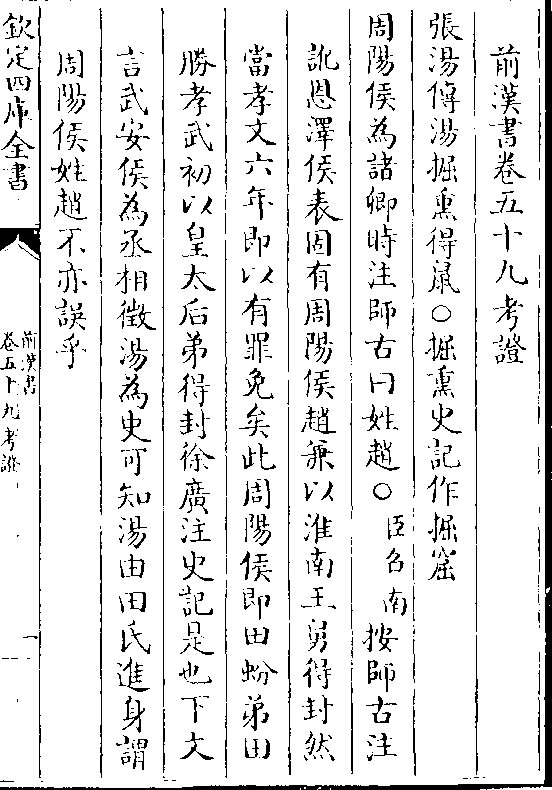 前漢書卷五十九考證
張湯傳湯掘熏得鼠○掘熏史記作掘窟
周陽侯為諸卿時注師古曰姓趙○臣召南按師古注
訛恩澤侯表固有周陽侯趙兼以淮南王舅得封然
當孝文六年即以有罪免矣此周陽侯即田蚡弟田
勝孝武初以皇太后弟得封徐廣注史記是也下文
言武安侯為丞相徵湯為史可知湯由田氏進身謂
周陽侯姓趙不亦誤乎
欽定四庫全書
前漢書
卷五十九考證
一